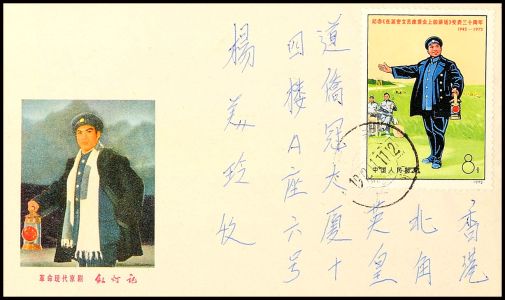 纪念《在延安文艺座谈会上的讲话》发表三十周年
1942—1972
8分
中国人民邮政
香港
北角
英皇
道僑冠大厦十
四楼A座六号
楊美玲收
革命现代京剧 红灯记